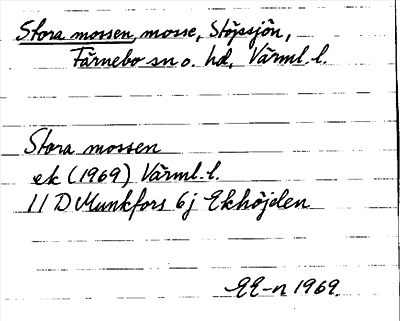 Stora mossen, mosse, Stöpsjön,
Färnebo sn o. hd, Värml. l.
Stora mossen
ek (1969) Värml. l.
11 D Munkfors 6j Ekhöjden
EE-n 1969.